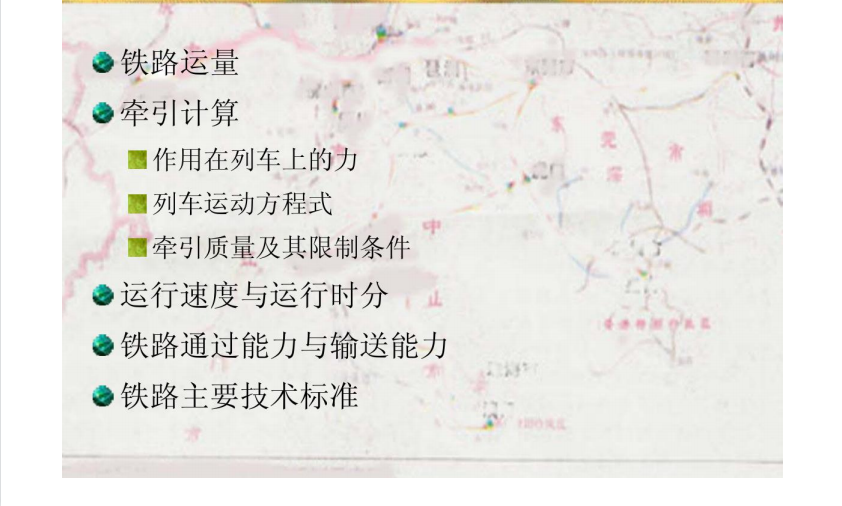 铁路运量
牵引计算
作用在列车上的力
列车运动方程式
牵引质量及其限制条件
运行速度与运行时分
铁路通过能力与输送能力
铁路主要技术标准